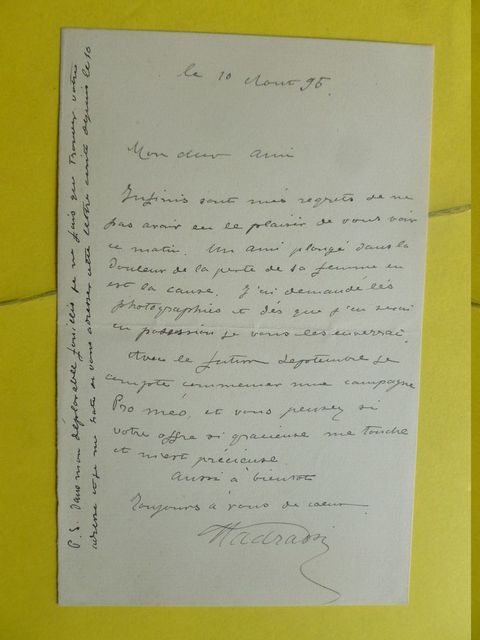 le 10 Aout 95.
Mon cher ami
Infinis sont mes regrets de ne
pas avoir eu le plaisir de vous voir
ce matin. Un ami plongé dans la
douleur de la perte de sa femme en
est la cause. J'ai demandé les
photographies et dès que j'en serai
en possession je vous les enverrai.
Avec le futur Septembre je
compte commencer une campagne
Pro méo, et vous pensez si
votre offre si gracieuse me touche
et m'est précieuse.
Aussi à bientôt
Toujours à vous de cœur
P. S. Dans mon déplorable fouillis je ne puis que trouver votre
adresse et je me hâte de vous adresser cette lettre écrite depuis le 10